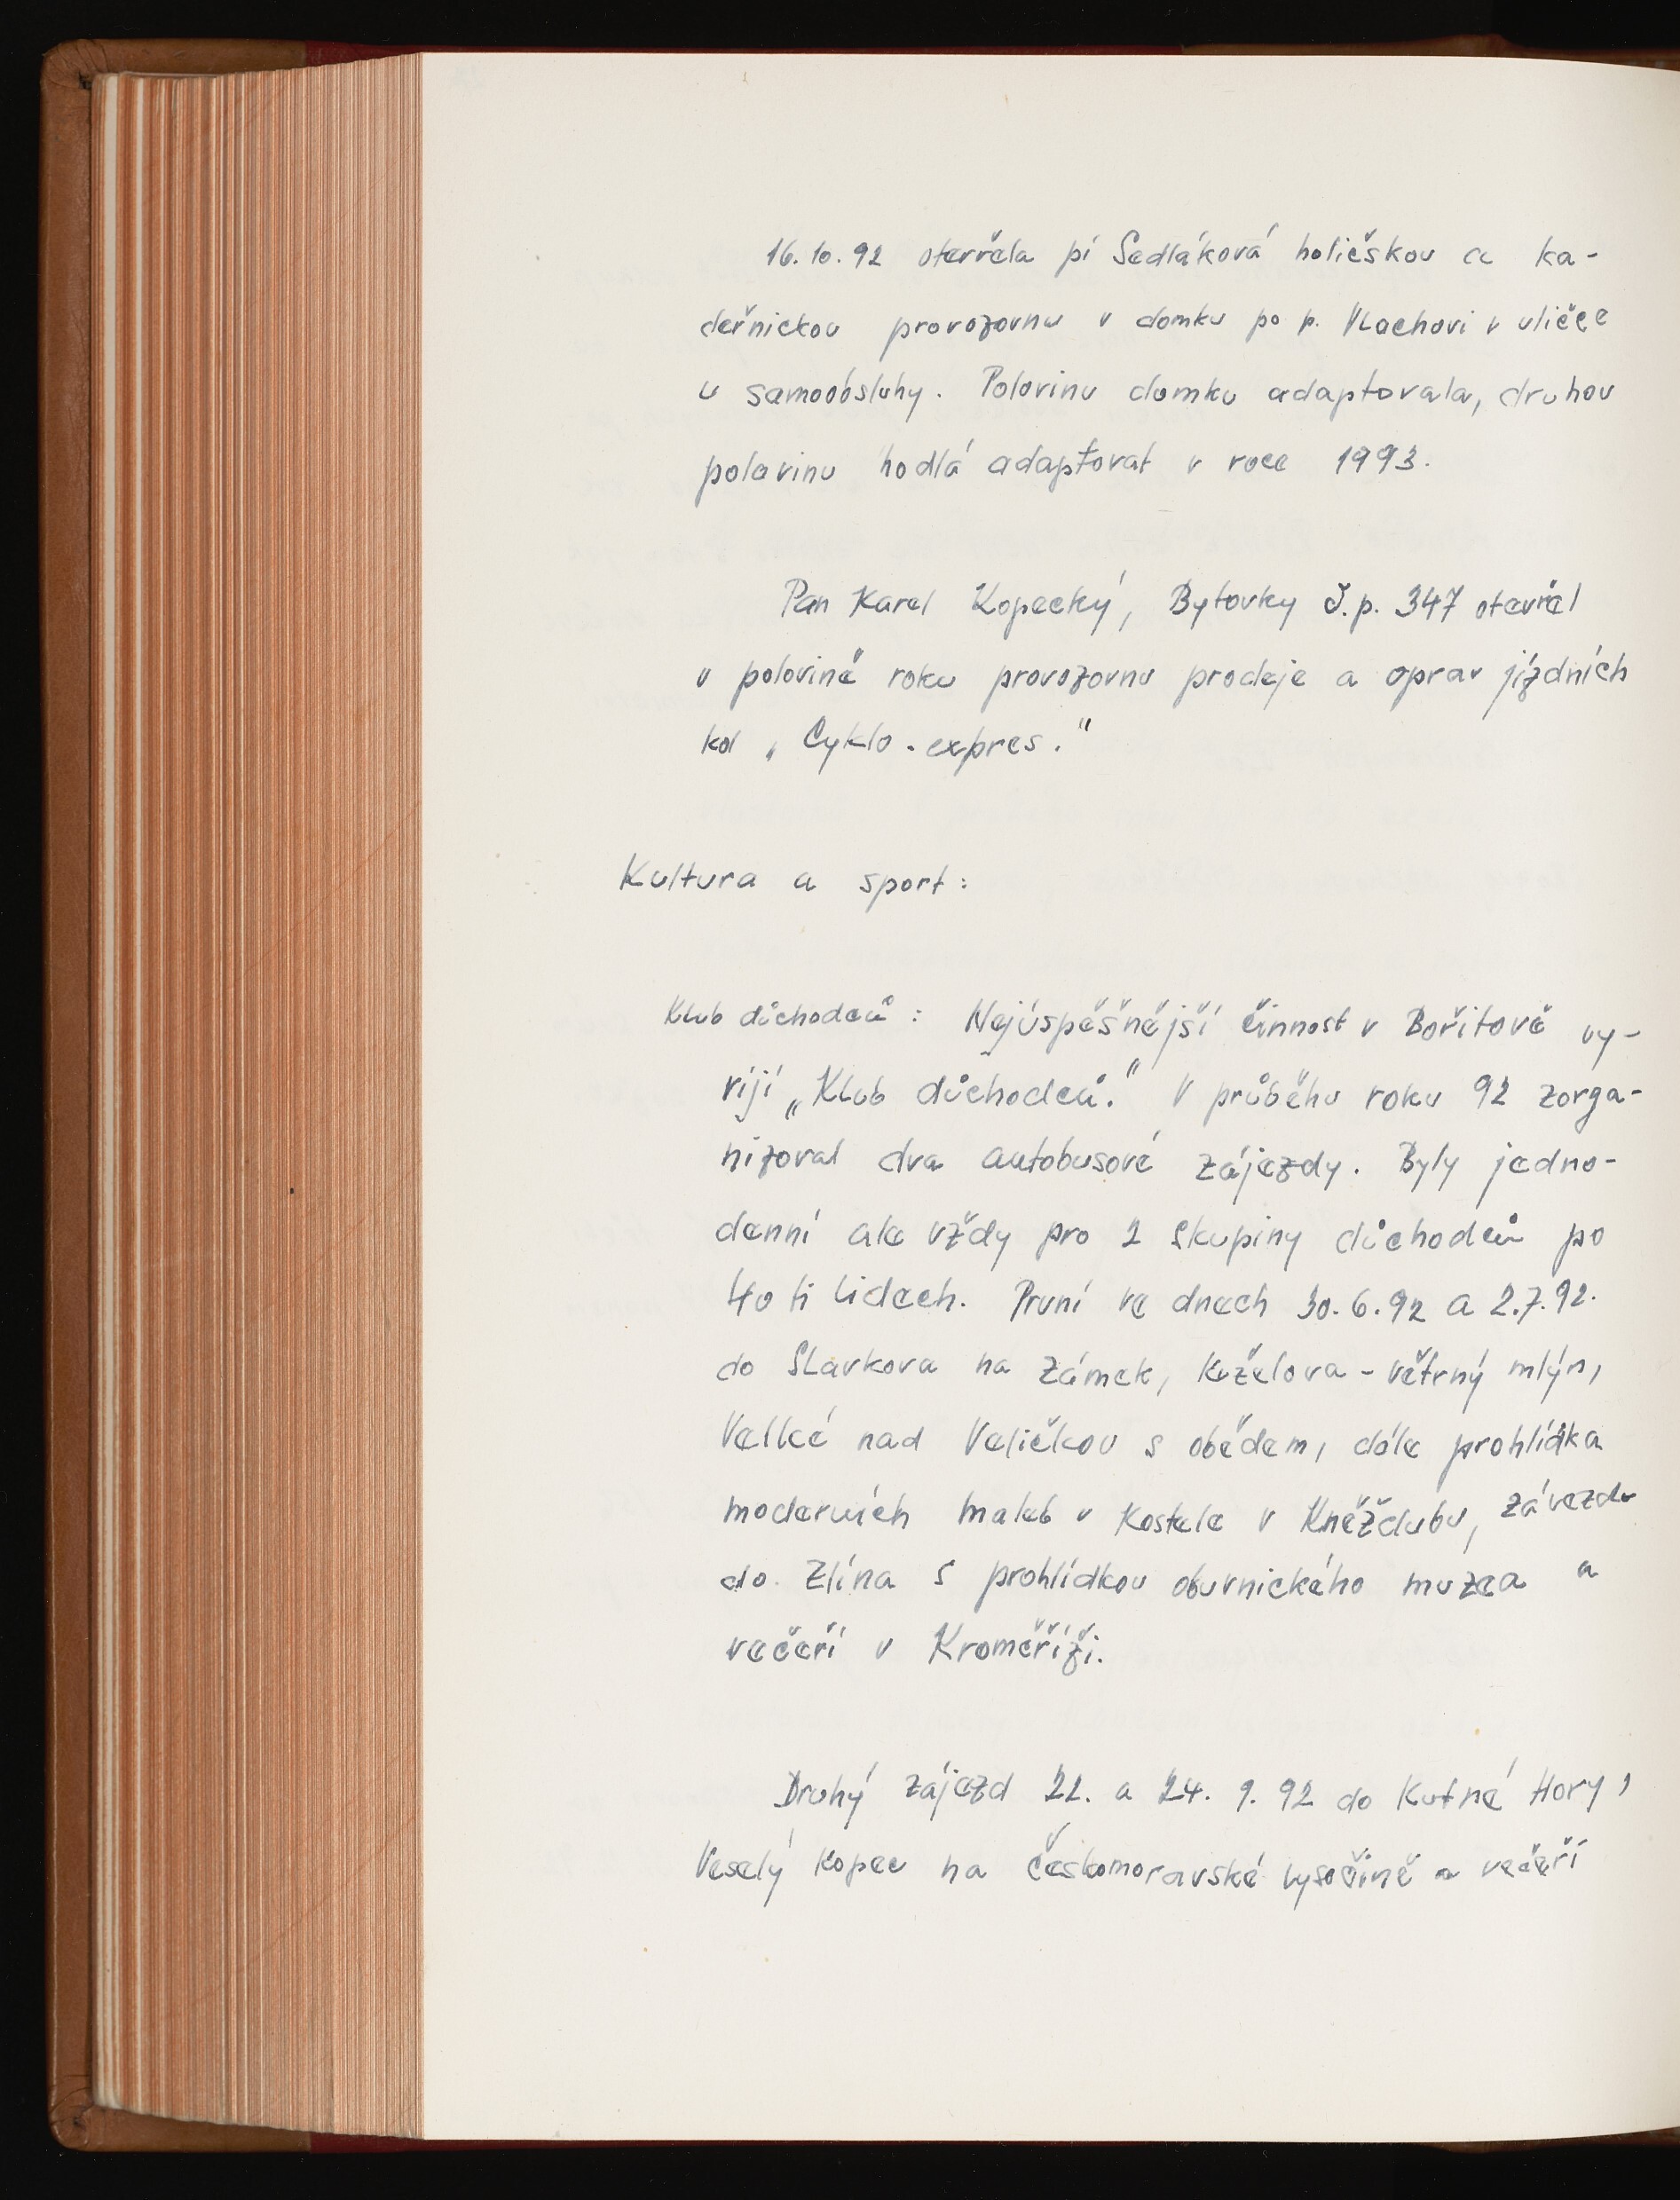 16. 10. 92 otevřela pí Sedláková holičskou a ka-
deřnickou provozovnu v domku po p. Vlachovi v uličce
u samoobsluhy. Polovinu domku adaptovala, druhou
polovinu hodlá adaptovat v roce 1993.
Pan Karel Kopecký, Bytovky č.p. 347 otevřel
v polovině roku provozovnu prodeje a oprav jízdních
kol „Cyklo-expres."
Kultura a sport:
Klub důchodců: Nejúspěšnější činnost v Bořitově vy-
víjí „Klub důchodců." V průběhu roku 92 zorga-
nizoval dva autobusové zájezdy. Byly jedno-
denní ale vždy pro 2 skupiny důchodců po
40 ti lidech. První ve dnech 30. 6. 92 a 2. 7. 92.
do Slavkova na zámek, Kuželova - větrný mlýn,
Velké nad Veličkou s obědem, dále prohlídka
moderních maleb v kostele v Kněždubu,
do Zlína s prohlídkou obuvnického muzea a
večeří v Kroměříži.
Druhý zájezd 22. a 24. 9. 92 do Kutné Hory,
Veselý Kopec na Českomoravské vysočině a večeří